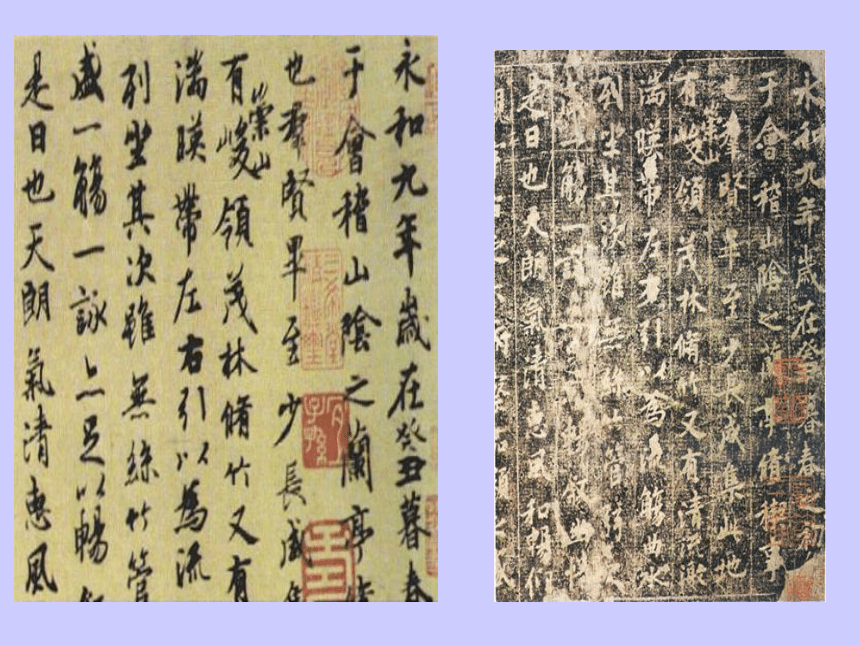 永和九年歲在癸丑暮春
于會稽山陰之蘭亭
也羣賢畢至少長咸
有崇山峻領茂林脩竹又有
湍暎帶左右引以為流
列坐其次雖無絲竹管
盛一觴一詠亦足以暢
是日也天朗氣清惠風
永和九年歲在癸暮春之初
于會稽山陰之蘭亭脩禊事
也羣賢畢至少長咸集此地
有崇山峻領茂林脩竹又有清流激
湍暎帶左右引以為流觴曲水
列坐其次雖無竹管
一觴一叙幽
是日也天朗氣清惠風和暢仰